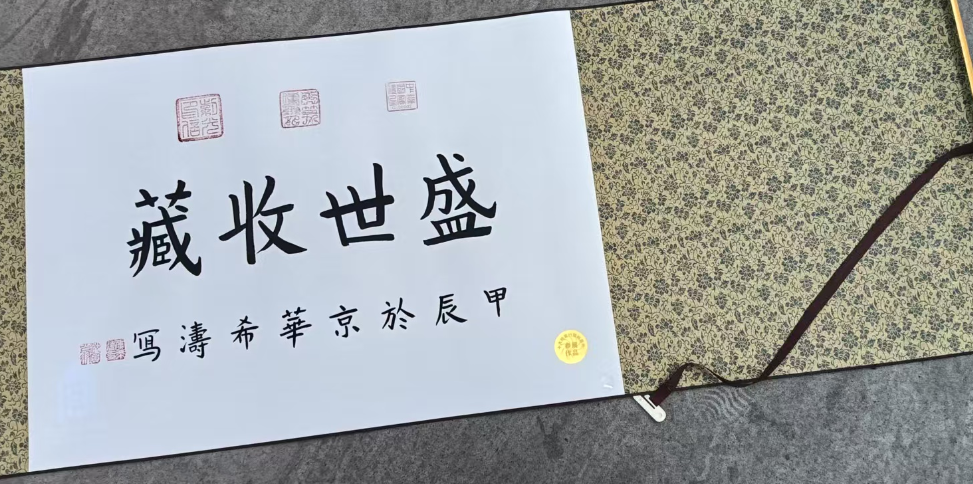 盛世收藏
甲辰於京華希濤写